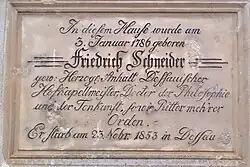 In diesem Hause wurde am
3. Januar 1786 geboren
Friedrich Schneider
gew. Herzogl. Anhalt Dessauischer
Hofkapellmeister, Doctor der Philosophie
und der Tonkunst, sowie Ritter mehrerer
Orden.
Er starb am 23. Nobr. 1853 in Dessau